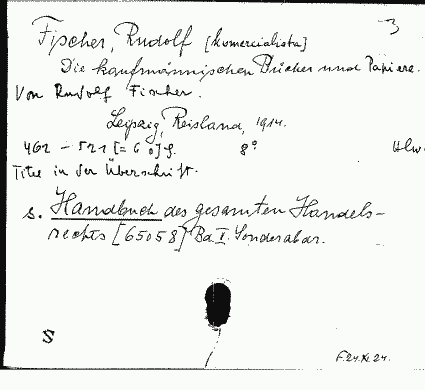 3
Fischer, Rudolf [komercialista]
Die kaufmännischen Bücher und Papiere.
Von Rudolf Fischer.
Leipzig, Reisland, 1914.
462 - 521 [= 60] S. 8° Hlw
Titel in der Überschrift.
s. Handbuch des gesamten Handels-
rechts [65058] Bd. I. Sonderabdr.
S
F.24.XI.24.